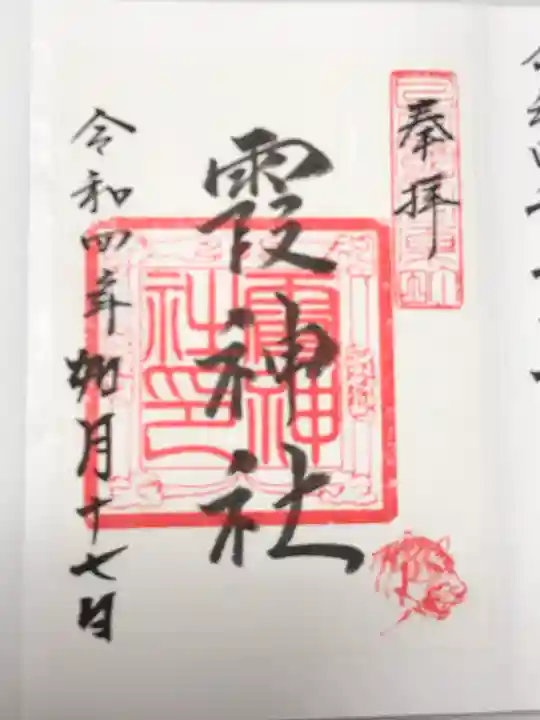 奉拝
霞神社
霞神社印
令和四年如月十七日